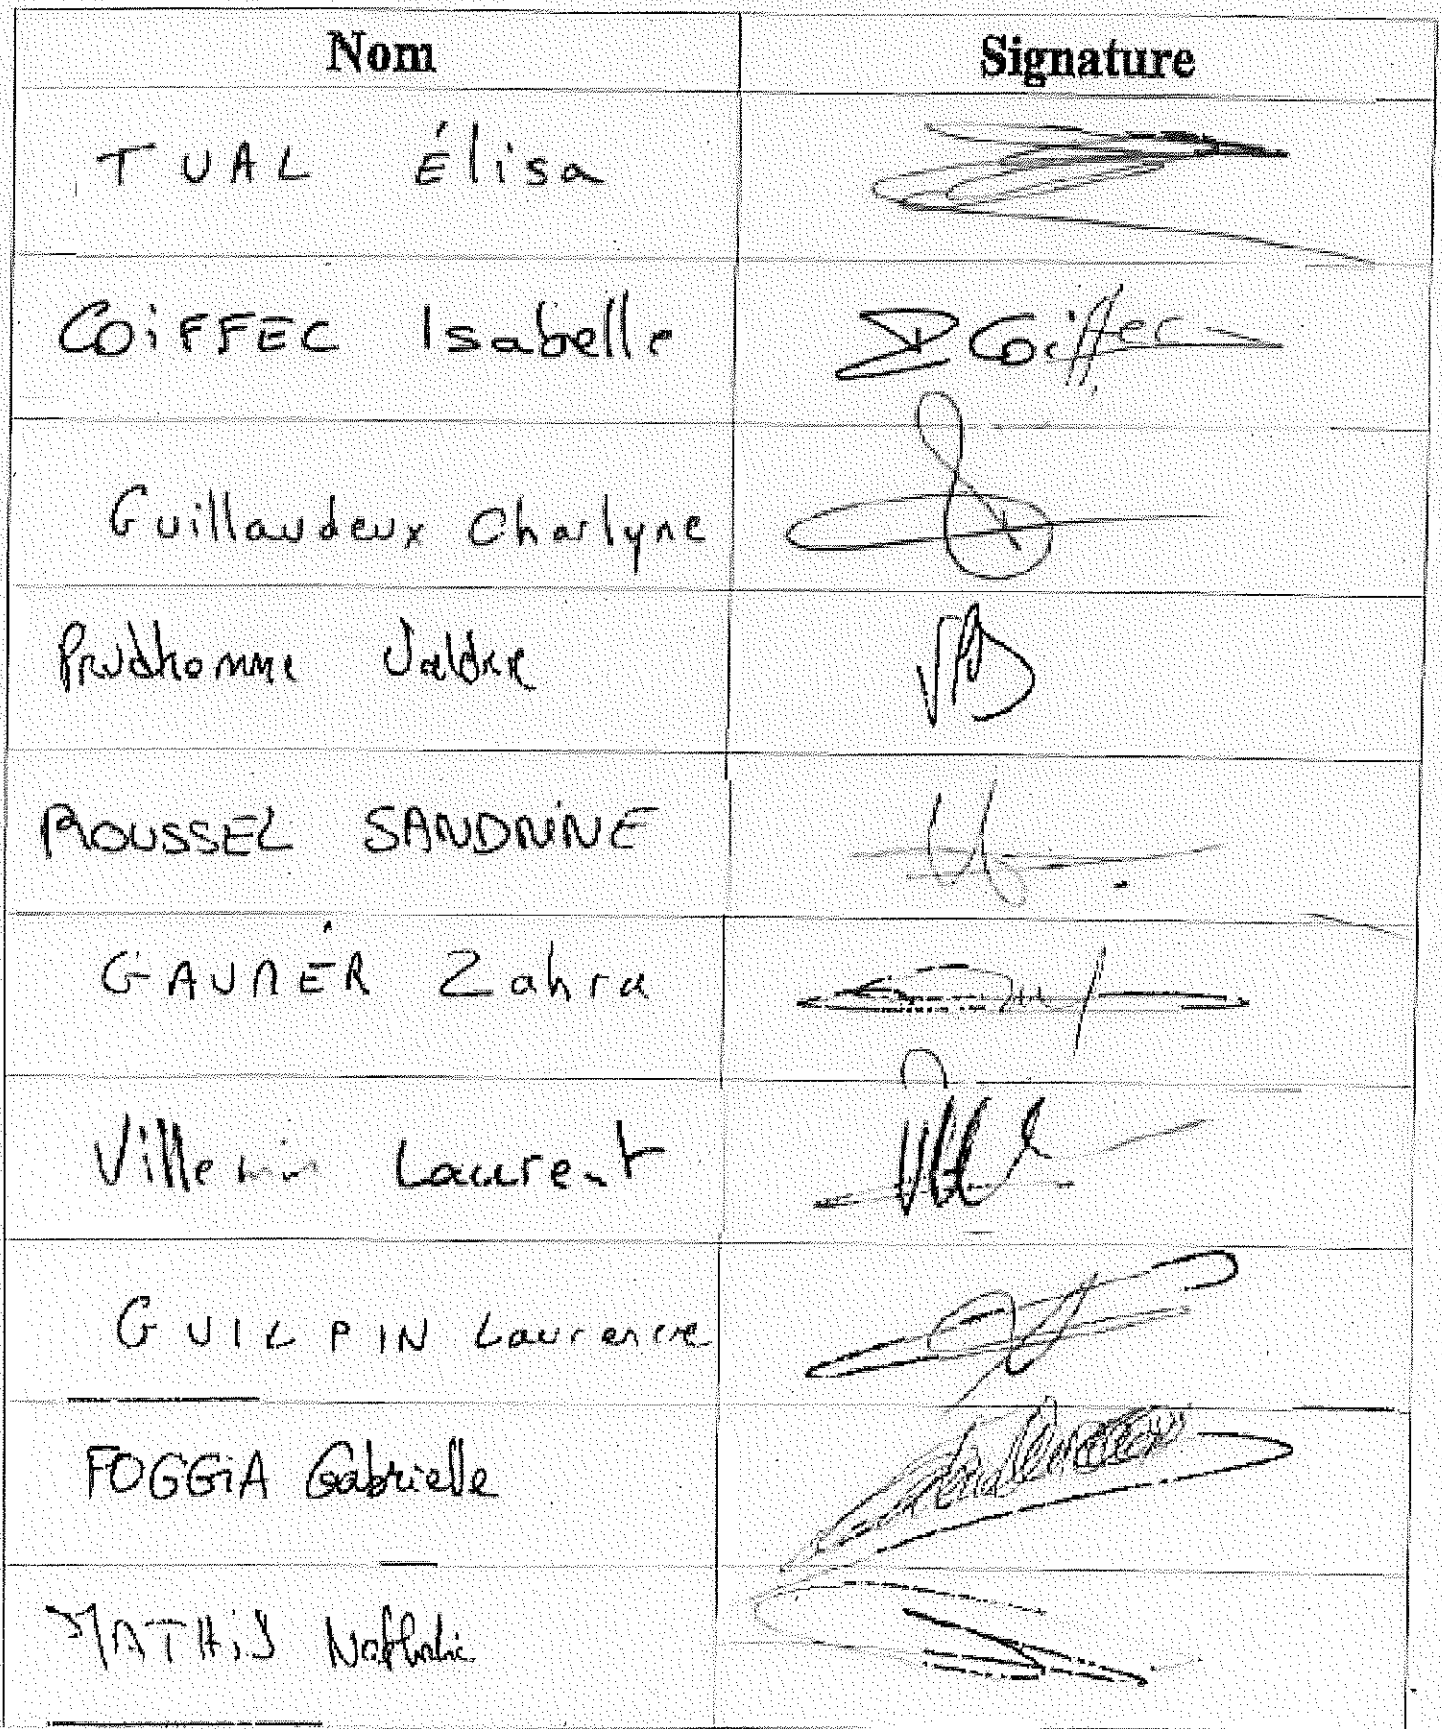 Nom Signature
TUAL Élisa
COiFFEC Isabelle I Coiffec
Guillaudeux Charlyne
Prudhomme
ROUSSEL SANDRiNE
Zahra
Villemin Laurent
GUILPIN Laurence
FOGGiA Gabrielle
MATHiS Nathalie